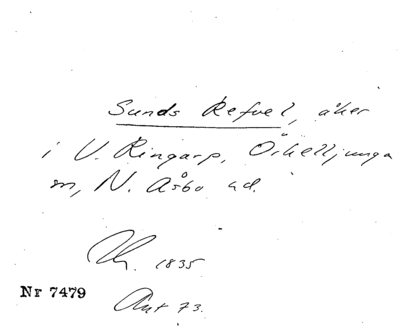 Sunds Refvel, åker
i V. Ringarp, Örkelljunga
m, N. Åsbo hd.
1835
Nr 7479
Ant 73.